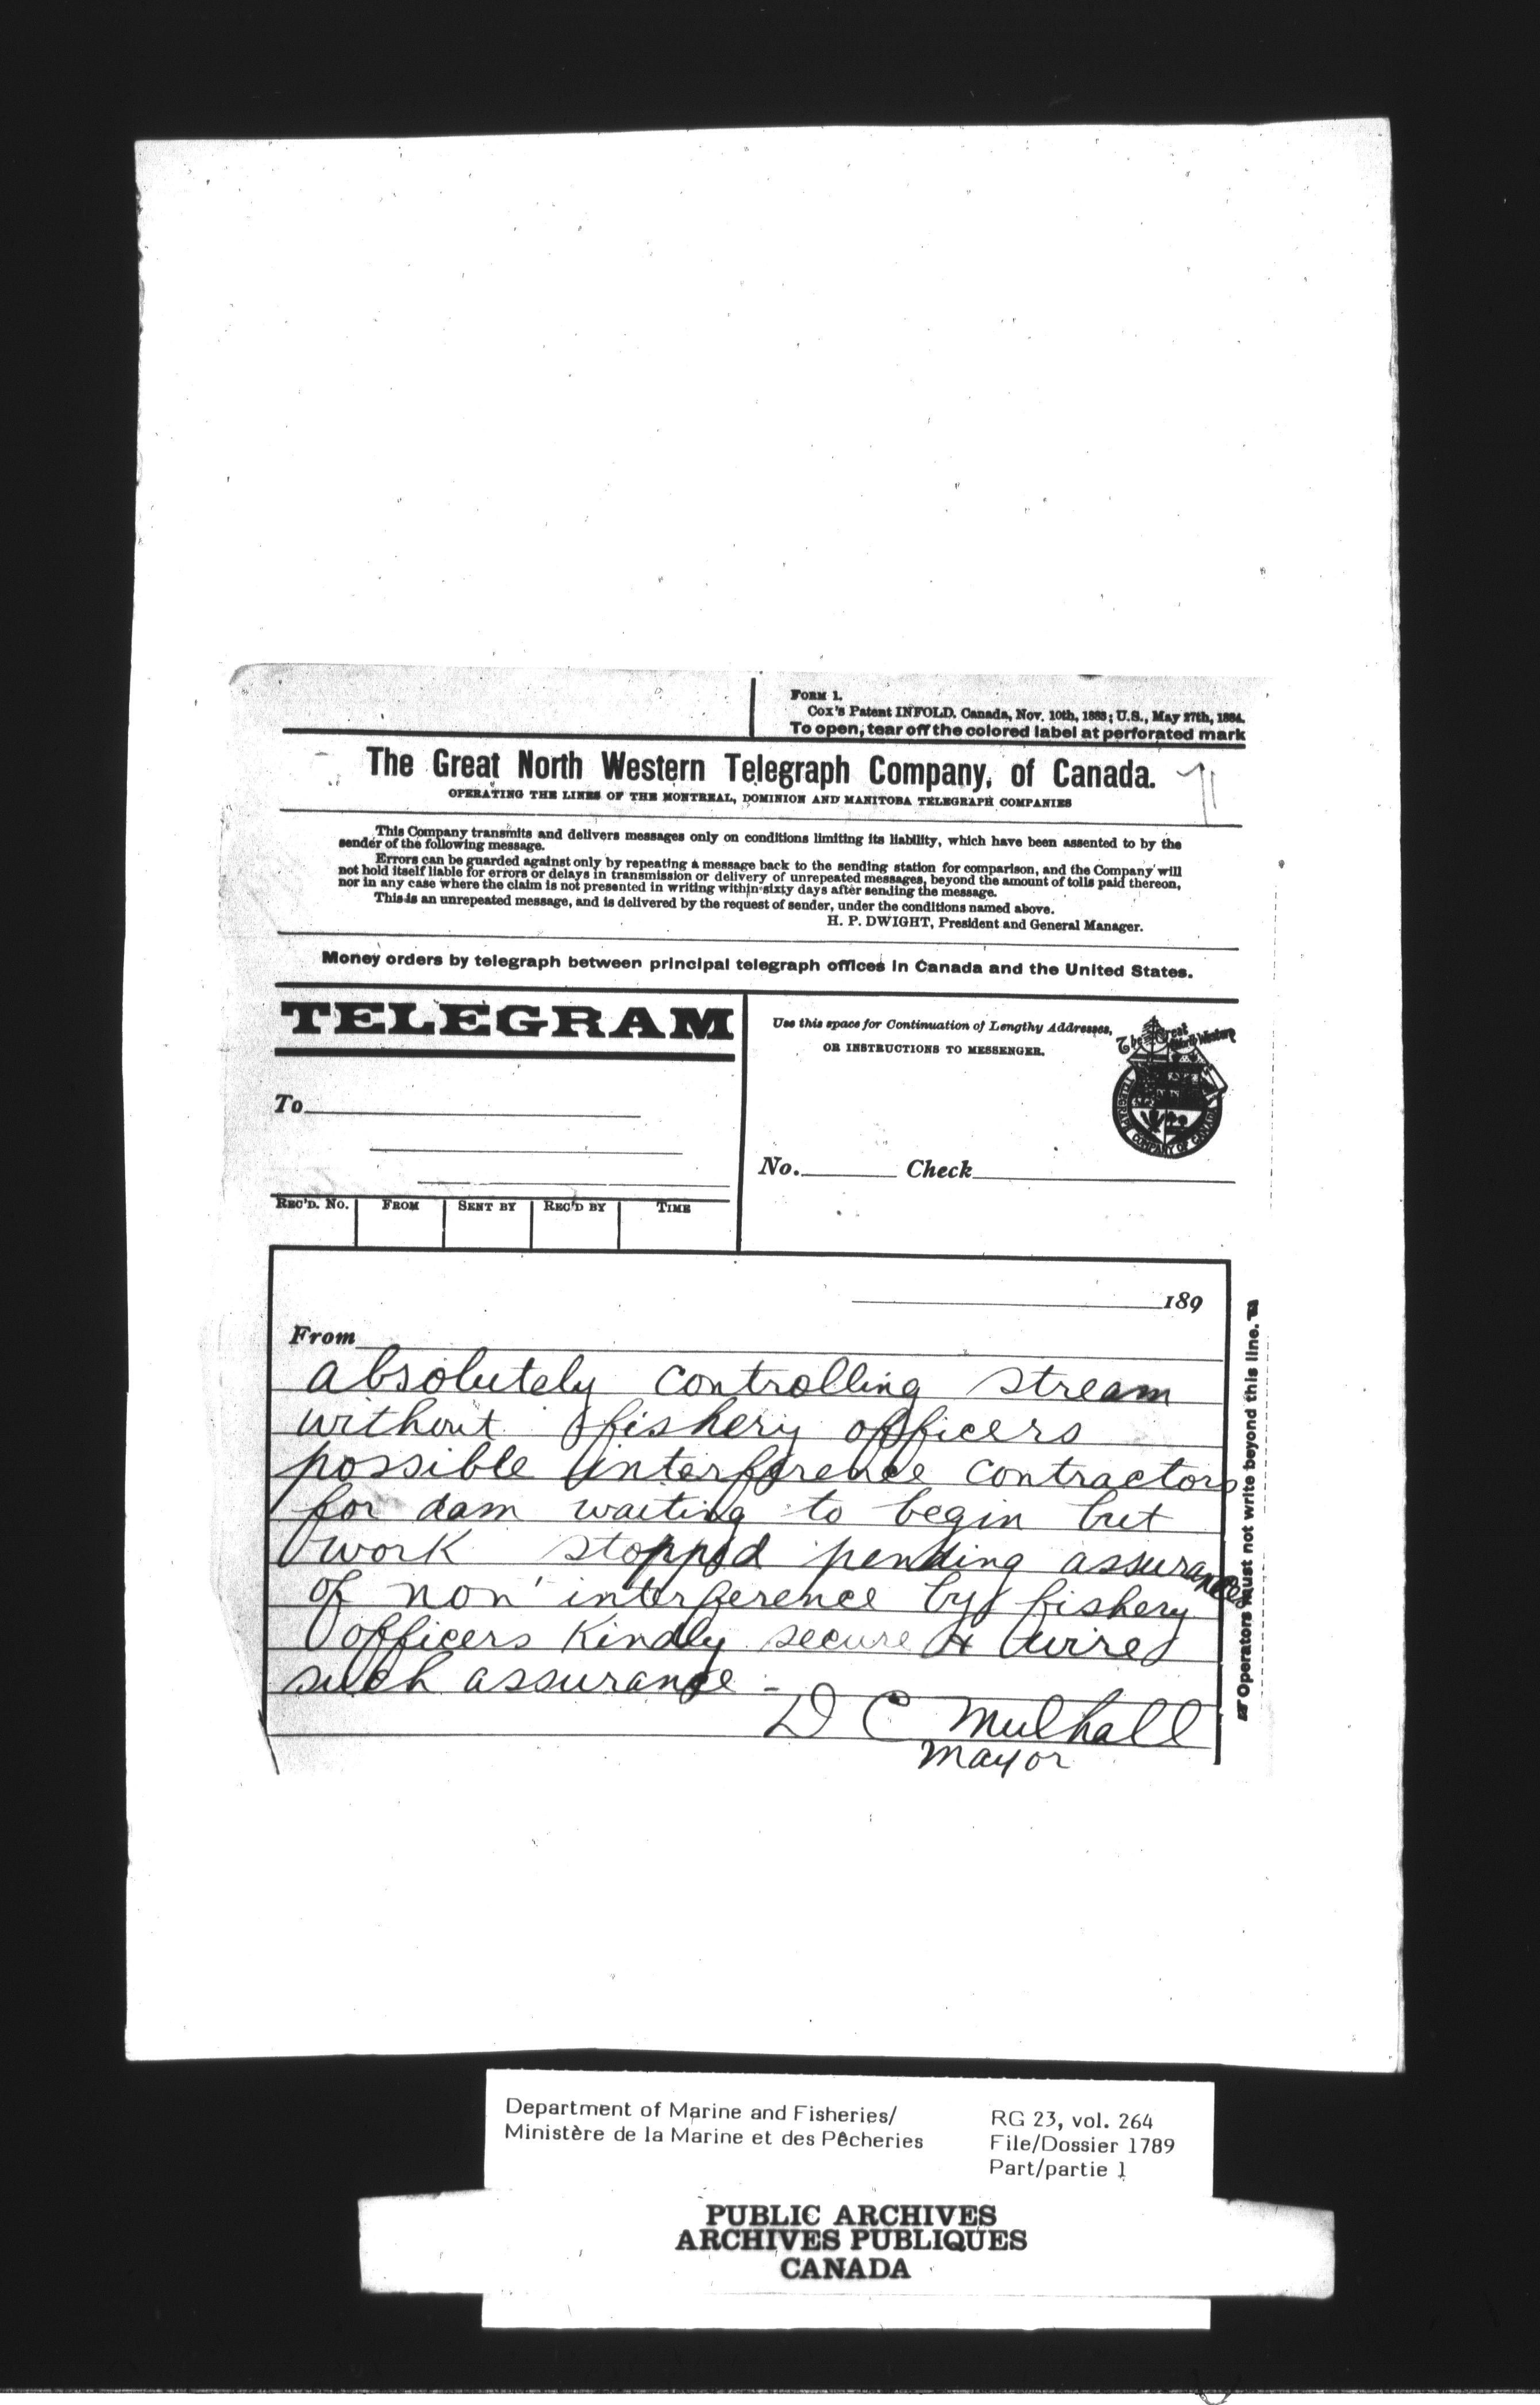 FORM 1.
Cox's Patent INFOLD. Canada, Nov. 10th, 1883; U.S., May 27th, 1884.
To open, tear off the colored label at perforated mark
The Great North Western Telegraph Company, of Canada.
OPERATING THE LINES OF THE MONTREAL, DOMINION AND MANITOBA TELEGRAPH COMPANIES
This Company transmits and delivers messages only on conditions limiting its liability, which have been assented to by the
sender of the following message.
Errors can be guarded against only by repeating a message back to the sending station for comparison, and the Company will
not hold itself liable for errors or delays in transmission or delivery of unrepeated messages, beyond the amount of tolls paid thereon,
nor in any case where the claim is not presented in writing within sixty days after sending the message.
This is an unrepeated message, and is delivered by the request of sender, under the conditions named above.
H. P. DWIGHT, President and General Manager.
Money orders by telegraph between principal telegraph offices in Canada and the United States.
TELEGRAM
Use this space for Continuation of Lengthy Addresses,
OR INSTRUCTIONS TO MESSENGER.
The Great North Western
TELEGRAPH COMPANY OF CANADA
To
No. Check
REC'D. NO. FROM SENT BY REC'D BY TIME
189
From
absolutely controlling stream
without fishery officers
possible interference contractors
for dam waiting to begin but
work stoppd pending assurances
of non interference by fishery
officers Kindly secure & wire
such assurance -
D C Mulhall
Mayor
Operators must not write beyond this line.
Department of Marine and Fisheries/
Ministère de la Marine et des Pêcheries
RG 23, vol. 264
File/Dossier 1789
Part/partie 1
PUBLIC ARCHIVES
ARCHIVES PUBLIQUES
CANADA